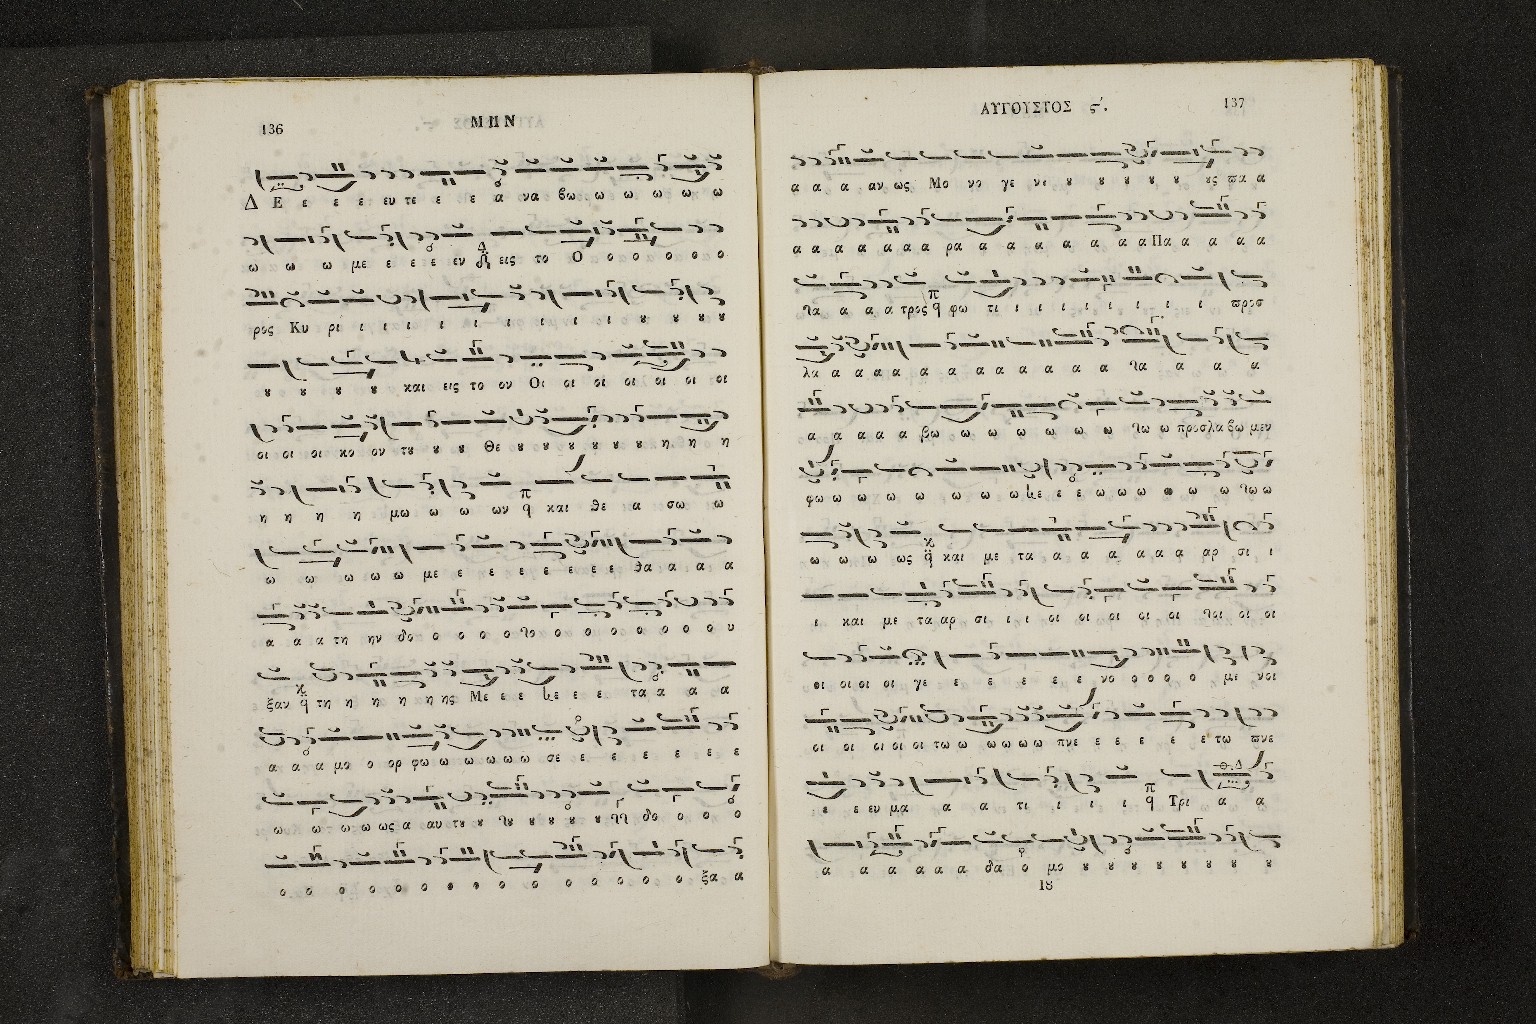 136
ΜΗΝ
Δ Ε ε ε ε ευ τε ε ε α να βω ω ω ω ω ω
ω ω ω με ε ε ε εν Δ εις το Ο ο ο ο ο ο
ρος Κυ ρι ι ι ι ι ι ι ι ι ι ι ȣ ȣ ȣ ȣ
ȣ ȣ ȣ ȣ και εις το ον Οι οι οι οι οι οι οι
οι οι οι κο ον τȣ ȣ ȣ Θε ȣ ȣ ȣ ȣ ȣ ȣ η η η
η η η η μω ω ω ων π ϥ και θε α σω ω
ω ω ω ω ω με ε ε ε ε ε ε ε θα α α α
α α α τη ην δο ο ο ο ο το ο ο ο ο ο ο ο υ
ξαν ϥ τη η η η η ης Με ε ε ε ε ε τα α α α
α α α μο ο ορ φω ω ω ω ω ω σε ε ε ε ε ε ε
ω ω ω ω ως α αυ τȣ ȣ ȣ ȣ ȣ ȣ δο ο ο ο
ο ο ο ο ο ο ο ο ο ο ο ο ο ο ξα α
ΑΥΓΟΥΣΤΟΣ ϛ΄.
137
α α α αν ως Μο νο γε νι ȣ ȣ ȣ ȣ ȣ ȣ ȣς πα α
α α α α α α α ρα α α α α α α α Πα α α α α
τα α α α τρος π ϥ φω τι ι ι ι ι ι ι ι ι προσ
λα α α α α α α α α α α α α τα α α α
α α α α α βω ω ω ω ω ω ω τω ω προσλα βω μεν
φω ω ω ω ω ω ω ω ε ε ε ω ω ω ω ω ω τω ω
ω ω ω ως ϥ και με τα α α α α α α αρ σι ι
ι και με τα αρ σι ι ι οι οι οι οι οι τοι οι οι
οι οι οι οι γε ε ε ε ε ε νο ο ο ο με νοι
οι οι οι οι οι τω ω ω ω ω ω πνε ε ε ε ε ε τω πνε
ε ε ευ μα α α τι ι ι ι π ϥ Τρι α α
α α α α α α δα ο μο ȣ ȣ ȣ ȣ ȣ ȣ ȣ ȣ
18